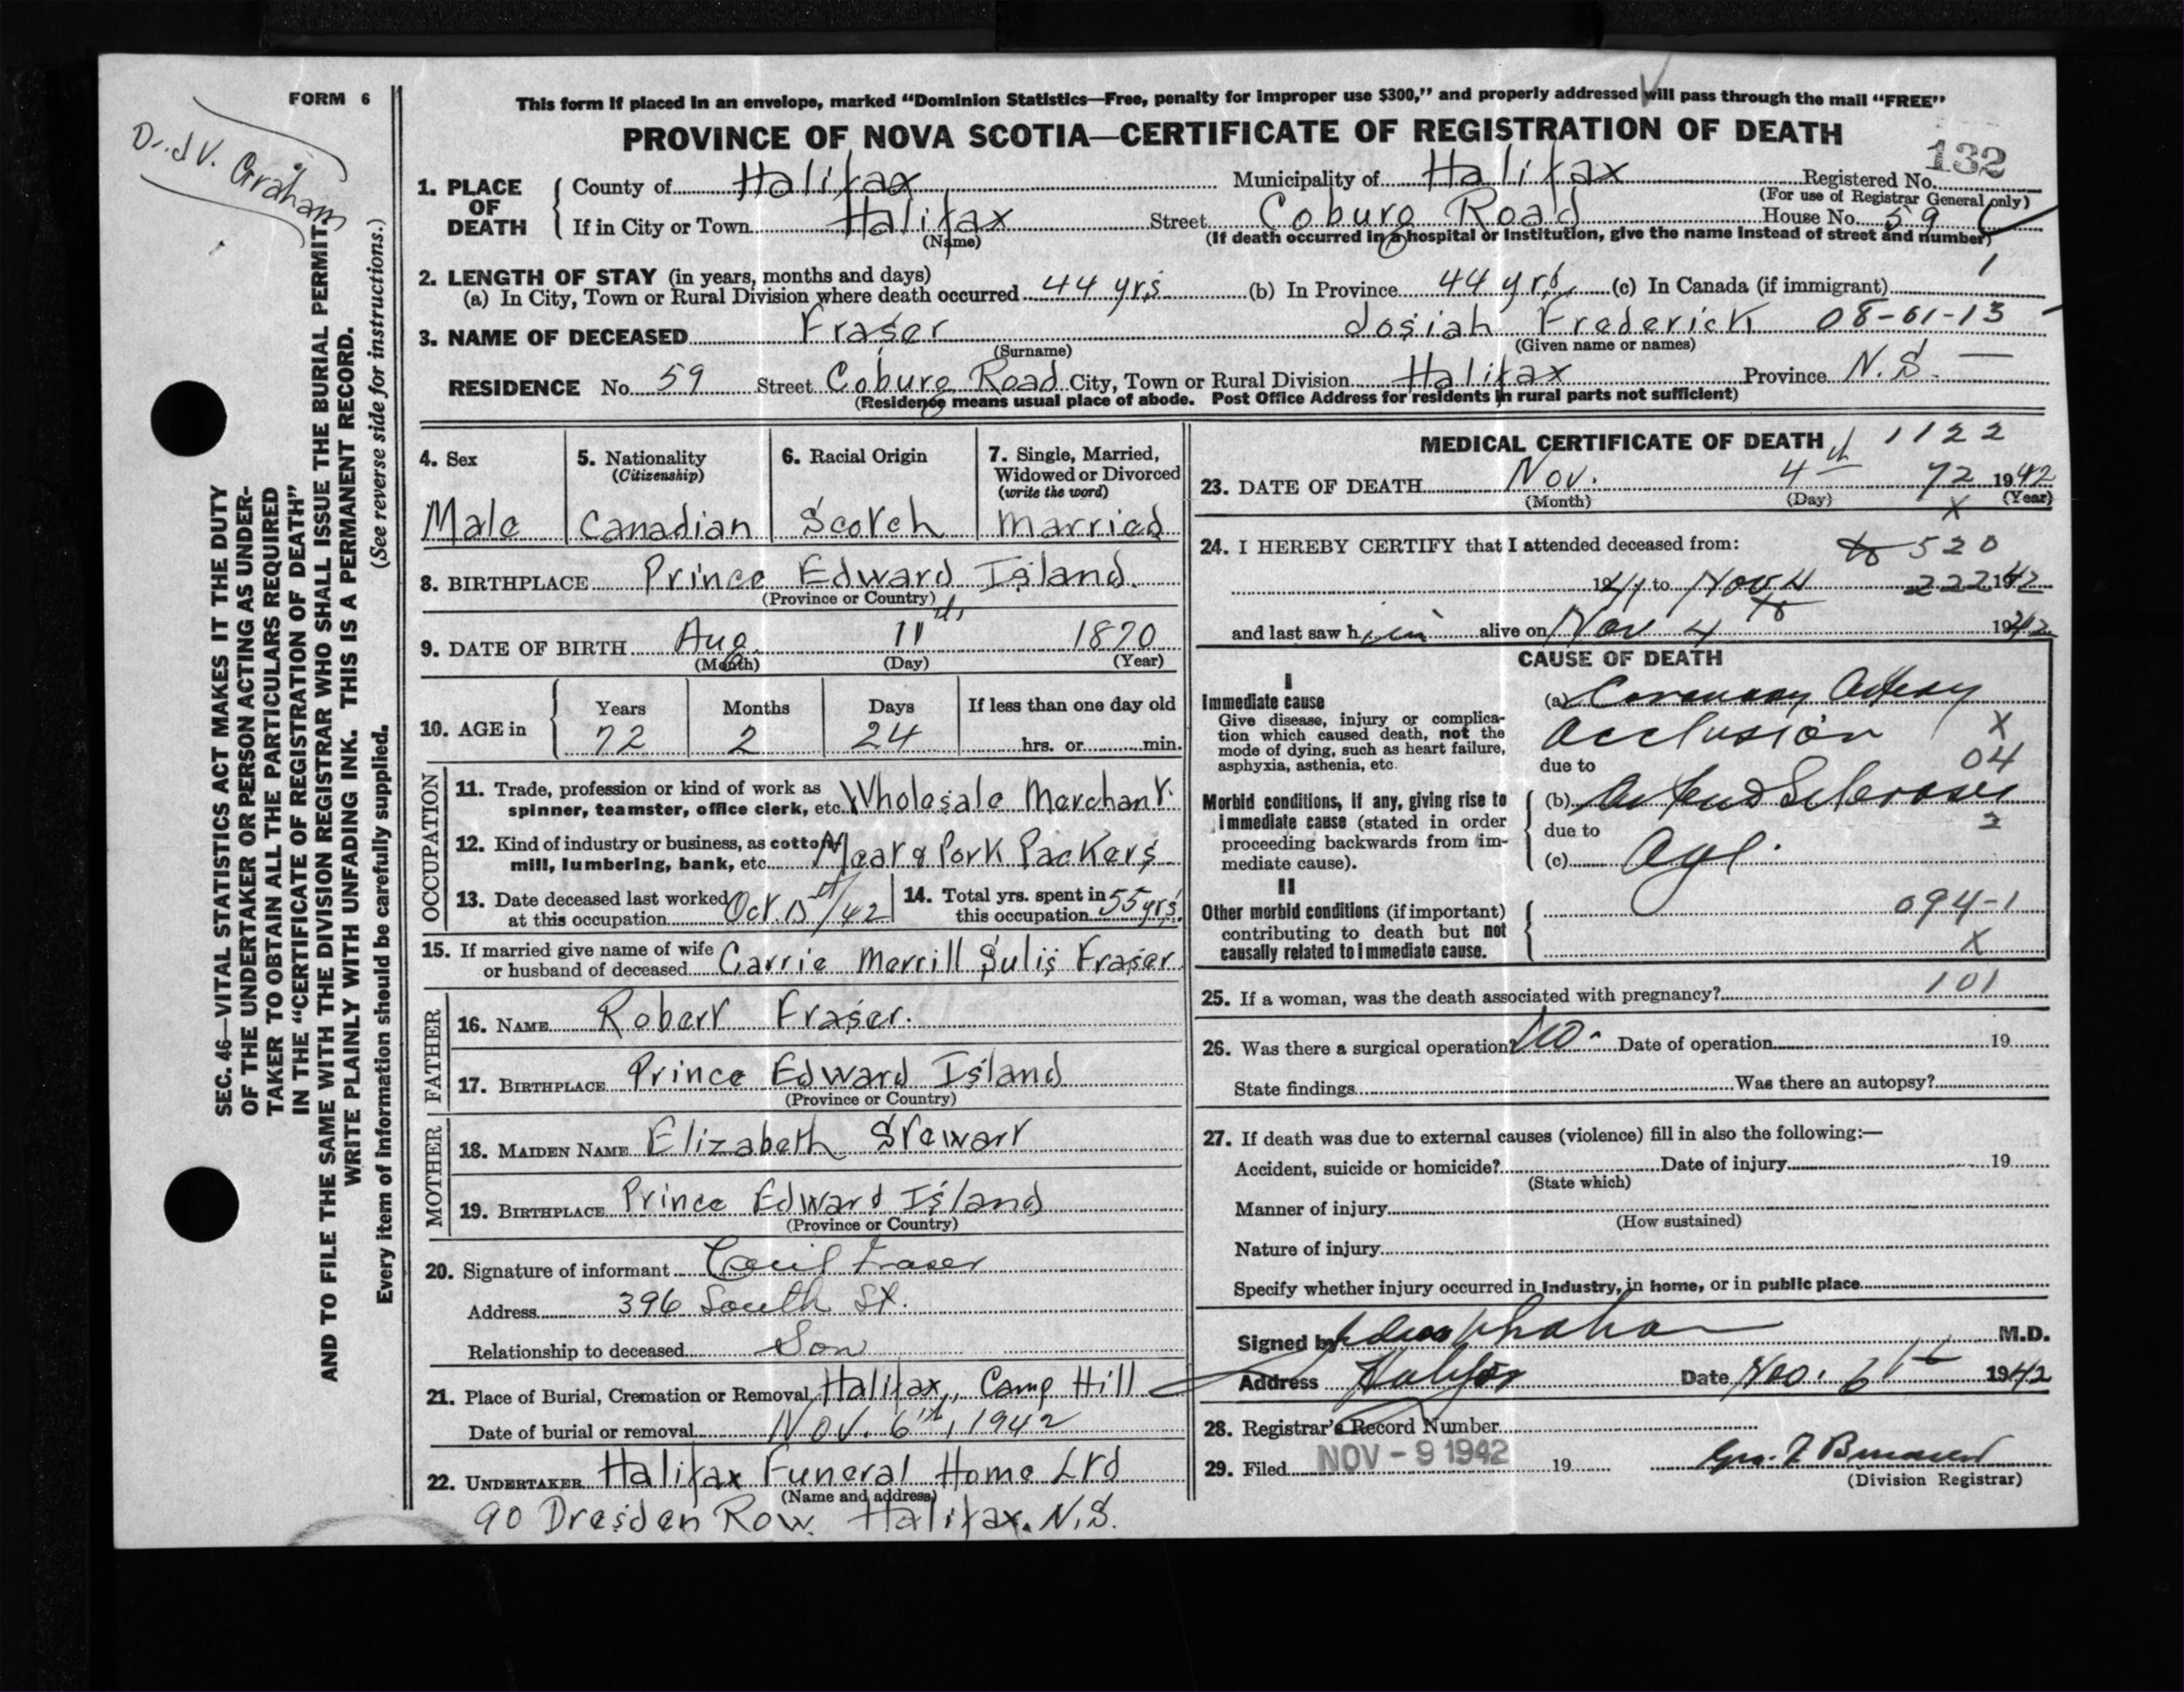 FORM 6
Dr. J V. Graham
SEC. 46—VITAL STATISTICS ACT MAKES IT THE DUTY
OF THE UNDERTAKER OR PERSON ACTING AS UNDER-
TAKER TO OBTAIN ALL THE PARTICULARS REQUIRED
IN THE "CERTIFICATE OF REGISTRATION OF DEATH"
AND TO FILE THE SAME WITH THE DIVISION REGISTRAR WHO SHALL ISSUE THE BURIAL PERMIT.
WRITE PLAINLY WITH UNFADING INK. THIS IS A PERMANENT RECORD.
Every item of information should be carefully supplied. (See reverse side for instructions.)
This form if placed in an envelope, marked "Dominion Statistics—Free, penalty for improper use $300," and properly addressed will pass through the mail "FREE"
PROVINCE OF NOVA SCOTIA—CERTIFICATE OF REGISTRATION OF DEATH
132
1. PLACE OF DEATH County of Halifax Municipality of Halifax Registered No.
(For use of Registrar General only)
If in City or Town Halifax Street Coburg Road House No. 59
(Name) (If death occurred in a hospital or institution, give the name instead of street and number)
2. LENGTH OF STAY (in years, months and days) 1
(a) In City, Town or Rural Division where death occurred 44 yrs (b) In Province 44 yrs, (c) In Canada (if immigrant)
3. NAME OF DECEASED Fraser Josiah Frederick 08-61-13
(Surname) (Given name or names)
RESIDENCE No. 59 Street Coburg Road City, Town or Rural Division Halifax Province N.S. —
(Residence means usual place of abode. Post Office Address for residents in rural parts not sufficient)
4. Sex 5. Nationality 6. Racial Origin 7. Single, Married,
(Citizenship) Widowed or Divorced
(write the word)
Male Canadian Scotch Married
8. BIRTHPLACE Prince Edward Island.
(Province or Country)
9. DATE OF BIRTH Aug. 11th, 1870
(Month) (Day) (Year)
10. AGE in Years Months Days If less than one day old
72 2 24 hrs. or min.
OCCUPATION
11. Trade, profession or kind of work as
spinner, teamster, office clerk, etc. Wholesale Merchant.
12. Kind of industry or business, as cotton
mill, lumbering, bank, etc. Meat & Pork Packers
13. Date deceased last worked
at this occupation Oct. 15th/42
14. Total yrs. spent in
this occupation 55 yrs.
15. If married give name of wife
or husband of deceased Carrie Merrill Sulis Fraser
FATHER
16. NAME Robert Fraser.
17. BIRTHPLACE Prince Edward Island
(Province or Country)
MOTHER
18. MAIDEN NAME Elizabeth Stewart
19. BIRTHPLACE Prince Edward Island
(Province or Country)
20. Signature of informant Cecil Fraser
Address 396 South St.
Relationship to deceased Son
21. Place of Burial, Cremation or Removal Halifax, Camp Hill
Date of burial or removal Nov. 6th, 1942
22. UNDERTAKER Halifax Funeral Home Ltd
(Name and address)
90 Dresden Row. Halifax. N.S.
MEDICAL CERTIFICATE OF DEATH 1122
23. DATE OF DEATH Nov. 4th 72 1942
(Month) (Day) (Year)
X
24. I HEREBY CERTIFY that I attended deceased from: 520
1941 to Nov 4 222 1942
and last saw him alive on Nov 4th 1942
CAUSE OF DEATH
I
Immediate cause
Give disease, injury or complica-
tion which caused death, not the
mode of dying, such as heart failure,
asphyxia, asthenia, etc.
(a) Coronary Artery
Occlusion X
due to 04
Morbid conditions, if any, giving rise to
immediate cause (stated in order
proceeding backwards from im-
mediate cause).
(b) Arterio Sclerosis
due to 2
(c) Age.
II
Other morbid conditions (if important)
contributing to death but not
causally related to immediate cause.
094-1
X
25. If a woman, was the death associated with pregnancy? 101
26. Was there a surgical operation? No - Date of operation 19
State findings Was there an autopsy?
27. If death was due to external causes (violence) fill in also the following:—
Accident, suicide or homicide? Date of injury 19
(State which)
Manner of injury
(How sustained)
Nature of injury
Specify whether injury occurred in industry, in home, or in public place
Signed by Graham M.D.
Address Halifax Date Nov. 6th 1942
28. Registrar's Record Number
29. Filed NOV - 9 1942 19
(Division Registrar)